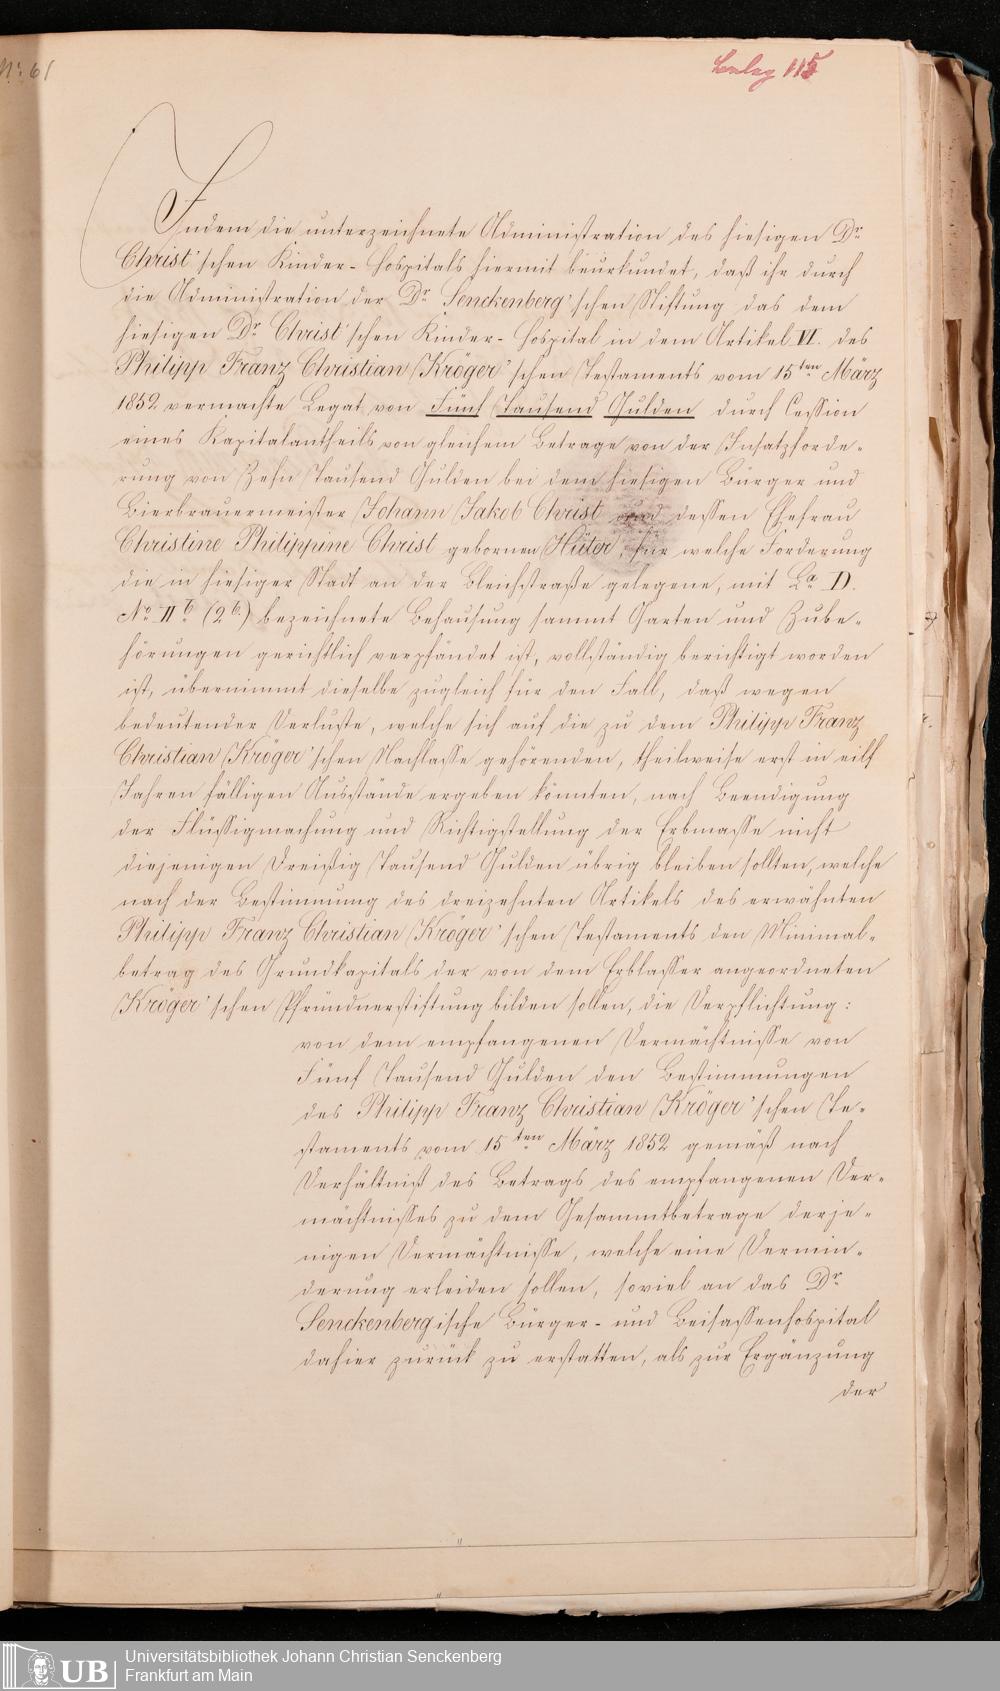 No 61
Beleg 115
Indem die unterzeichnete Administration des hiesigen Dr.
Christ'schen Kinder-Hospitals hiermit beurkundet, daß ihr durch
die Administration der Dr. Senckenberg'schen Stiftung das dem
hiesigen Dr. Christ'schen Kinder-Hospital in dem Artikel VI. des
Philipp Franz Christian Kröger'schen Testaments vom 15ten März
1852 vermachte Legat von Fünf Tausend Gulden durch Cession
eines Kapitalantheils von gleichem Betrage von der Insatzforde-
rung von Zehn Tausend Gulden bei dem hiesigen Bürger und
Bierbrauermeister Johann Jakob Christ und dessen Ehefrau
Christine Philippine Christ gebornen Hüter, für welche Forderung
die in hiesiger Stadt an der Bleichstraße gelegene, mit La. D.
No. II b. (2 b.) bezeichnete Behausung sammt Garten und Zube-
hörungen gerichtlich verpfändet ist, vollständig berichtigt worden
ist, übernimmt dieselbe zugleich für den Fall, daß wegen
bedeutender Verluste, welche sich auf die zu dem Philipp Franz
Christian Kröger'schen Nachlasse gehörenden, theilweise erst in eilf
Jahren fälligen Ausstände ergeben könnten, nach Beendigung
der Flüssigmachung und Richtigstellung der Erbmasse nicht
diejenigen Dreißig Tausend Gulden übrig bleiben sollten, welche
nach der Bestimmung des dreizehnten Artikels des erwähnten
Philipp Franz Christian Kröger'schen Testaments den Minimal-
betrag des Grundkapitals der von dem Erblasser angeordneten
Kröger'schen Pfründnerstiftung bilden sollen, die Verpflichtung:
von dem empfangenen Vermächtnisse von
Fünf Tausend Gulden den Bestimmungen
des Philipp Franz Christian Kröger'schen Te-
staments vom 15ten März 1852 gemäß nach
Verhältniß des Betrags des empfangenen Ver-
mächtnisses zu dem Gesammtbetrage derje-
nigen Vermächtnisse, welche eine Vermin-
derung erleiden sollen, soviel an das Dr.
Senckenbergische Bürger- und Beisassenhospital
dahier zurück zu erstatten, als zur Ergänzung
der
UB
Universitätsbibliothek Johann Christian Senckenberg
Frankfurt am Main